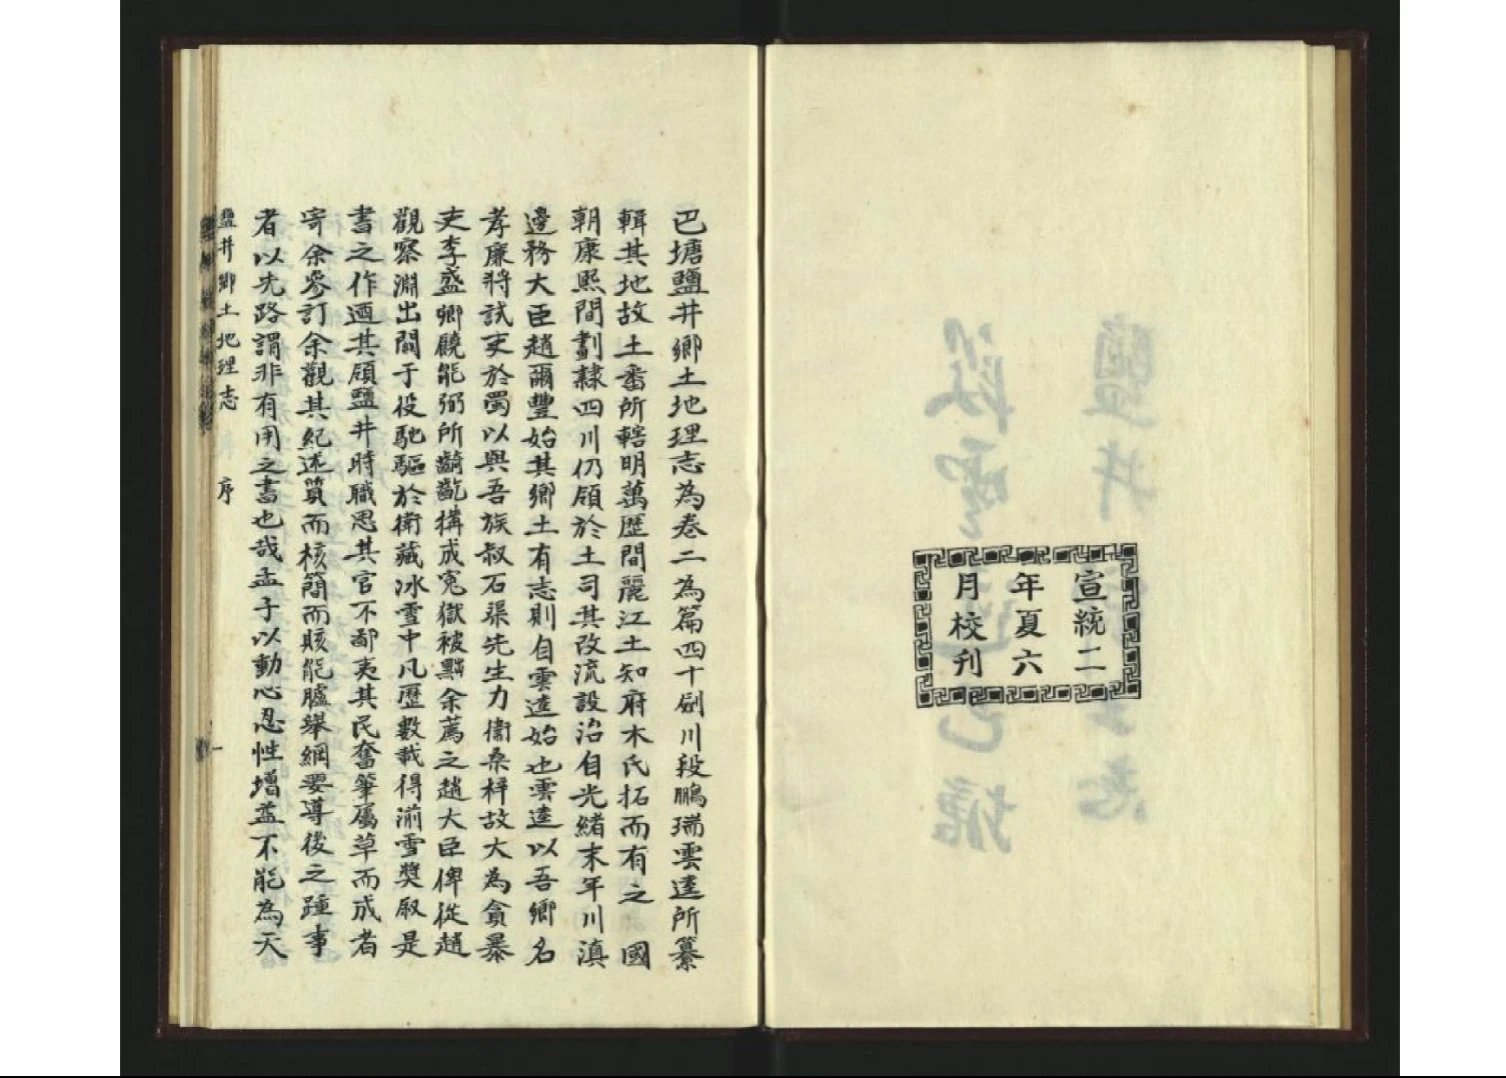 宣統二
年夏六
月校刊
巴塘鹽井鄉土地理志為卷二為篇四十劍川段鵬瑞雲逵所纂
輯其地故土番所轄明萬歷間麗江土知府木氏拓而有之 國
朝康熙間劃隸四川仍領於土司其改流設治自光緒末年川滇
邊務大臣趙爾豐始其鄉土有志則自雲逵始也雲逵以吾鄉名
孝廉將試吏於蜀以與吾族叔石渠先生力衞桑梓故大為貪暴
吏李盛卿饒能弼所齮齕搆成寃獄被黜余薦之趙大臣俾從趙
觀察淵出關于役馳驅於衛藏冰雪中凡歷數載得湔雪獎敘是
書之作迺其領鹽井時職思其官不鄙夷其民奮筆屬草而成者
寄余參訂余觀其紀述質而核簡而賅能臚舉綱要導後之踵事
者以先路謂非有用之書也哉孟子以動心忍性增益不能為天
鹽井鄉土地理志 序 一